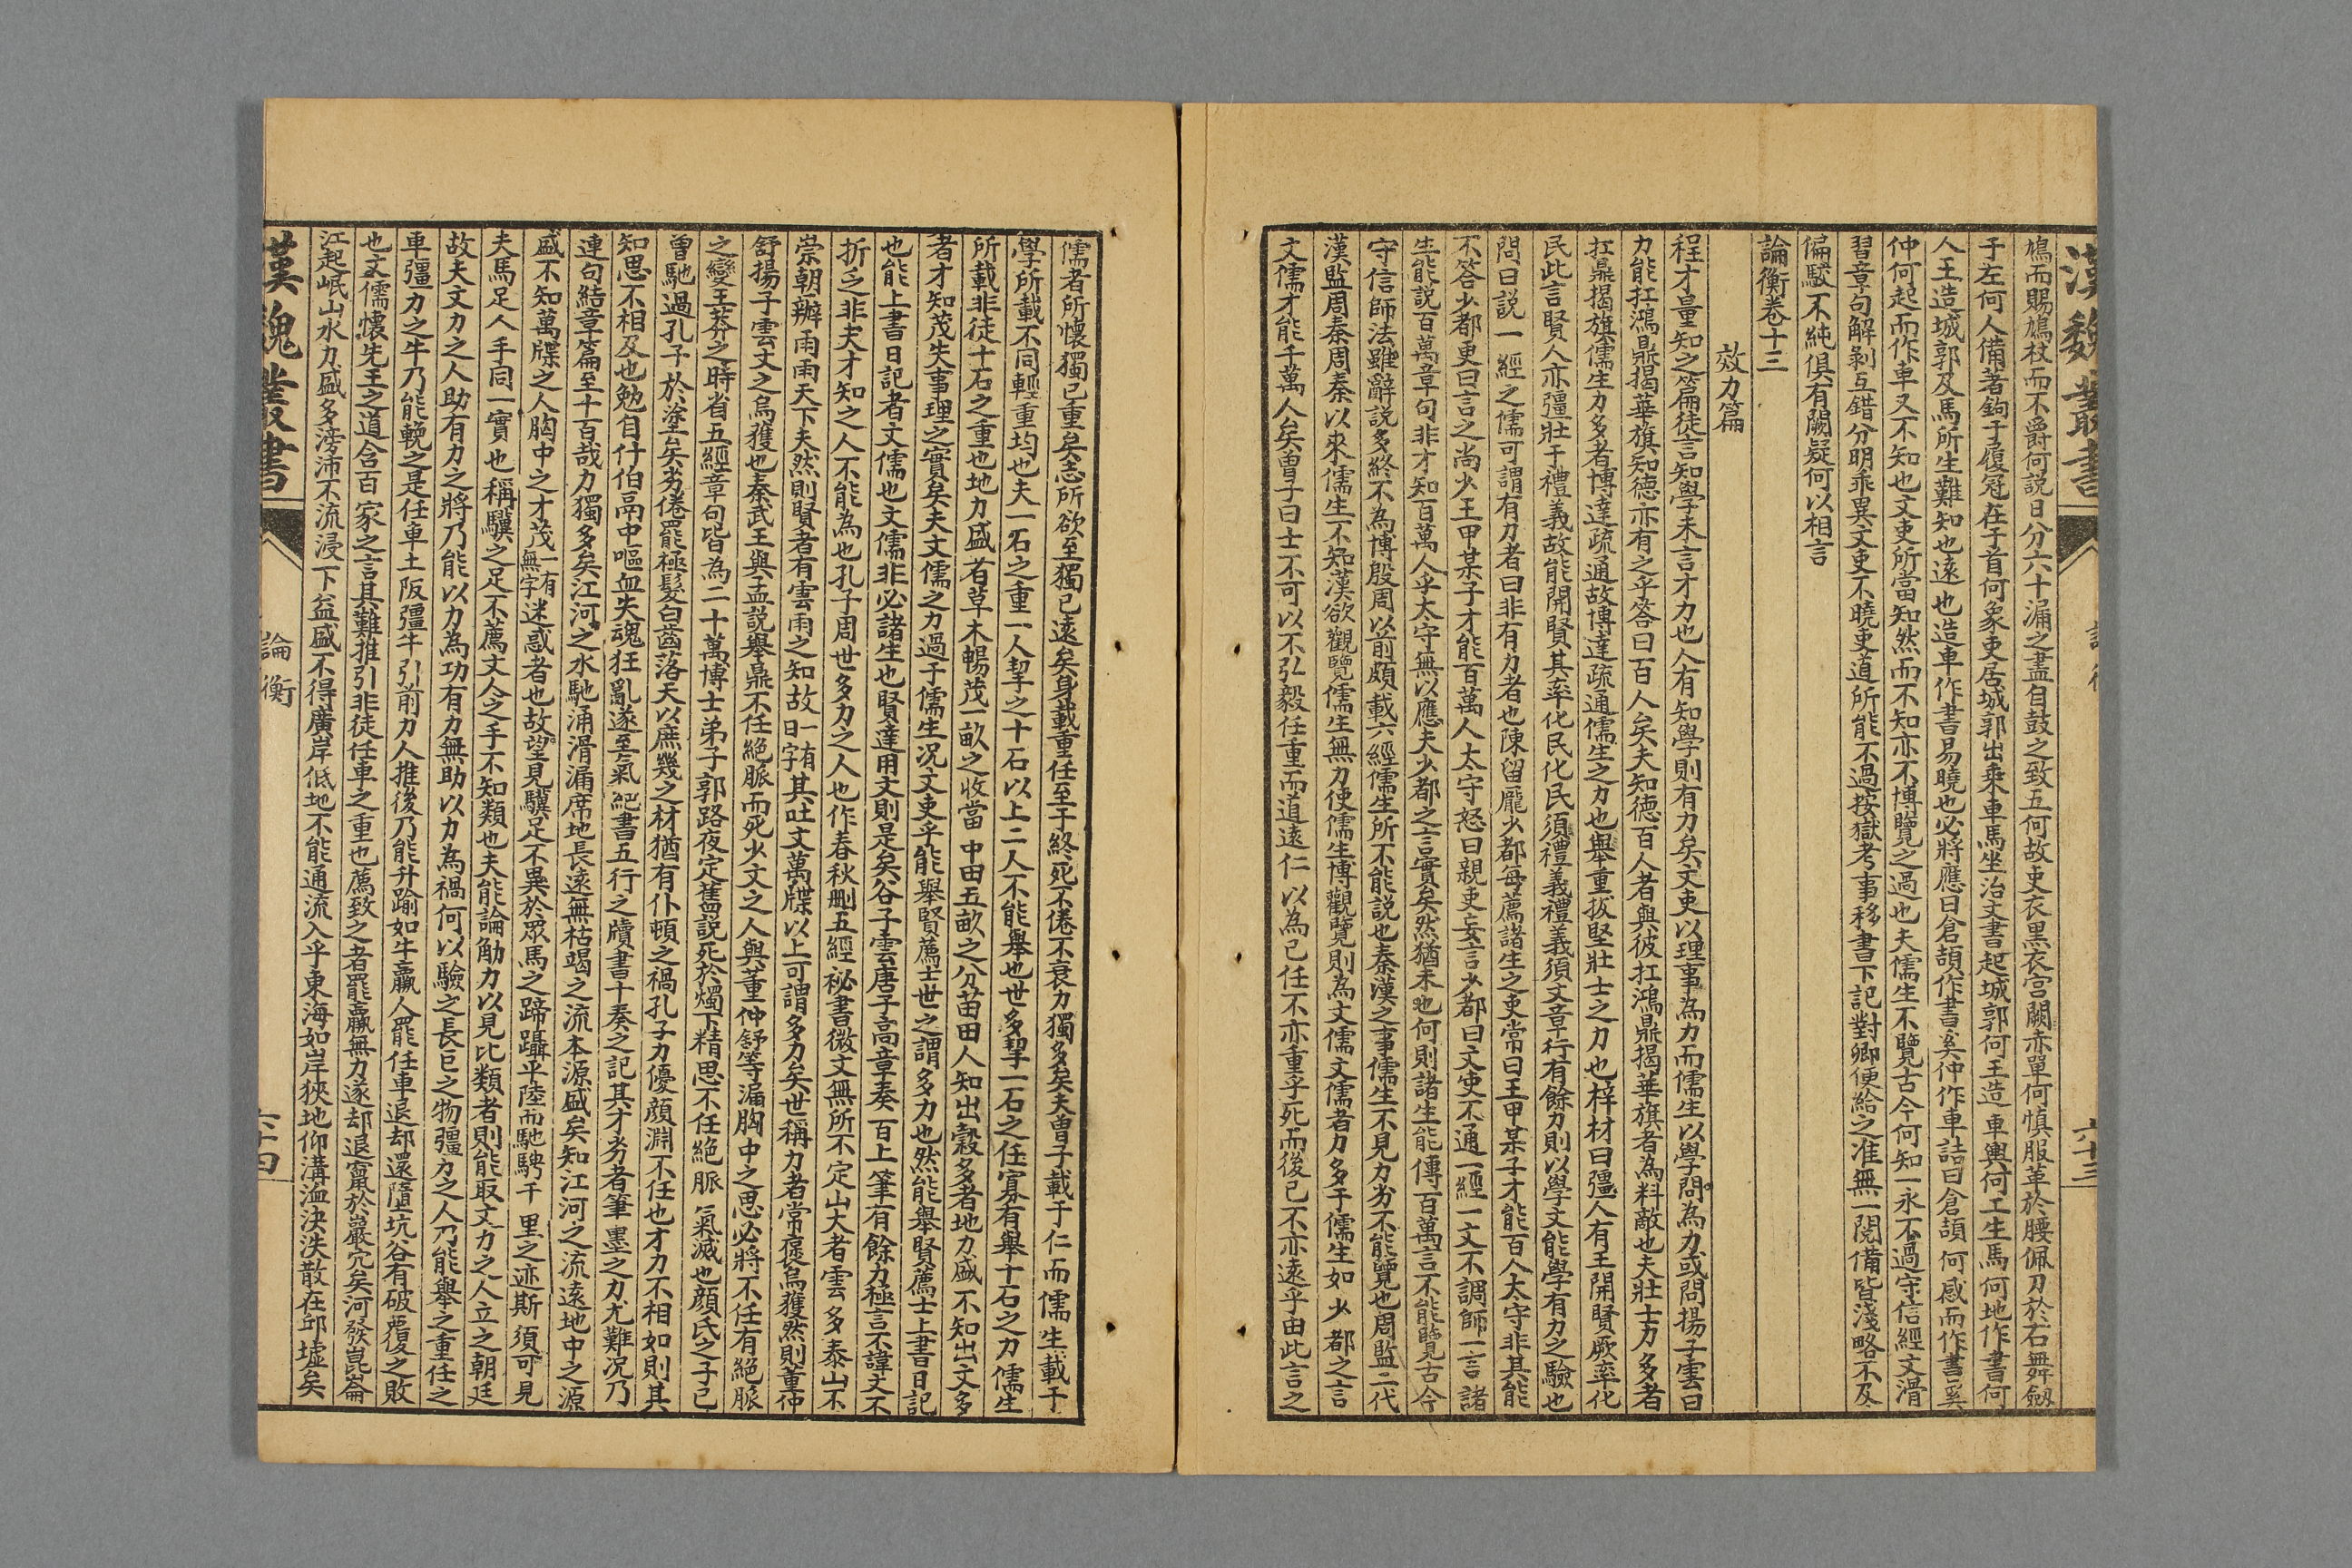 漢魏叢書
六十三
鳩而賜鳩杖而不爵何説日分六十漏之盡自鼓之致五何故吏衣黑衣宫闕赤單何慎服革於腰佩刀於右舞劔
于左何人備著鉤于履冠在于首何象吏居城郭出乘車馬坐治文書起城郭何王造車輿何工生馬何地作書何
人王造城郭及馬所生難知也遠也造車作書易曉也必將應曰倉頡作書奚仲作車詰曰倉頡何感而作書奚
仲何起而作車又不知也文吏所當知然而不知亦不博覽之過也夫儒生不覽古今何知一永不過守信經文滑
習章句解剝互錯分明乖異文吏不曉吏道所能不過按獄考事移書下記對卿便給之准無一閲備皆淺略不及
偏駮不純俱有闕疑何以相言
論衡卷十三
效力篇
程才量知之篇徒言知學未言才力也人有知學則有力矣文吏以理事為力而儒生以學問為力或問揚子雲曰
力能扛鴻鼎揭華旗知德亦有之乎答曰百人矣夫知德百人者與彼扛鴻鼎揭華旗者為料敵也夫壯士力多者
扛鼎揭旗儒生力多者博達疏通故博達疏通儒生之力也舉重拔堅壯士之力也梓材曰彊人有王開賢厥率化
民此言賢人亦彊壯于禮義故能開賢其率化民化民須禮義禮義須文章行有餘力則以學文能學有力之驗也
問曰説一經之儒可謂有力者曰非有力者也陳留龐少都每薦諸生之吏常曰王甲某子才能百人太守非其能
不答少都更曰言之尚少王甲某子才能百萬人太守怒曰親吏妄言少都曰文吏不通一經一文不調師一言諸
生能説百萬章句非才知百萬人乎太守無以應夫少都之言實矣然猶未也何則諸生能傳百萬言不能覽古今
守信師法雖辭説多終不為博殷周以前頗載六經儒生所不能説也秦漢之事儒生不見力劣不能覽也周監二代
漢監周秦周秦以來儒生不知漢欲觀覽儒生無力使儒生博觀覽則為文儒文儒者力多于儒生如少都之言
文儒才能千萬人矣曾子曰士不可以不弘毅任重而道遠仁以為已任不亦重乎死而後已不亦遠乎由此言之
儒者所懷獨已重矣志所欲至獨已遠矣身載重任至于終死不倦不衰力獨多矣夫曾子載于仁而儒生載于
學所載不同輕重均也夫一石之重一人挈之十石以上二人不能舉也世多挈一石之任寡有舉十石之力儒生
所載非徒十石之重也地力盛者草木暢茂一畝之收當中田五畝之分苗田人知出穀多者地力盛不知出文多
者才知茂失事理之實矣夫文儒之力過于儒生况文吏乎能舉賢薦士世之謂多力也然能舉賢薦士上書日記
也能上書日記者文儒也文儒非必諸生也賢達用文則是矣谷子雲唐子高章奏百上筆有餘力極言不諱文不
折乏非夫才知之人不能為也孔子周世多力之人也作春秋刪五經祕書微文無所不定山大者雲多泰山不
崇朝辦雨雨天下夫然則賢者有雲雨之知故日一有字其吐文萬牒以上可謂多力矣世稱力者常褒烏獲然則董仲
舒揚子雲文之烏獲也秦武王與孟説舉鼎不任絶脈而死少文之人與董仲舒等湧胸中之思必將不任有絶脈
之變王莽之時省五經章句皆為二十萬博士弟子郭路夜定舊説死於燭下精思不任絶脈氣滅也顔氏之子已
曾馳過孔子於塗矣劣倦罷極髮白齒落夫以庶幾之材猶有仆頓之禍孔子力優顔淵不任也才力不相如則其
知思不相及也勉自什伯鬲中嘔血失魂狂亂遂至氣絶書五行之牘書十奏之記其才劣者筆墨之力尤難况乃
連句結章篇至十百哉力獨多矣江河之水馳涌滑漏席地長遠無枯竭之流本源盛矣知江河之流遠地中之源
盛不知萬牒之人胸中之才茂一有無字迷惑者也故望見驥足不異於衆馬之蹄躡平陸而馳騁千里之迹斯須可見
夫馬足人手同一實也稱驥之足不薦文人之手不知類也夫能論觔力以見比類者則能取文力之人立之朝廷
故夫文力之人助有力之將乃能以力為功有力無助以力為禍何以驗之長巨之物彊力之人乃能舉之重任之
車彊力之牛乃能輓之是任車上阪彊牛引前力人推後乃能升踰如牛羸人罷任車退却還墮坑谷有破覆之敗
也文儒懷先王之道含百家之言其難推引非徒任車之重也薦致之者罷羸無力遂却退竄於巖穴矣河發崑崙
江起岷山水力盛多滂沛不流浸下益盛不得廣岸低地不能通流入乎東海如岸狹地仰溝洫决泆散在邱墟矣
漢魏叢書
論衡
六十四